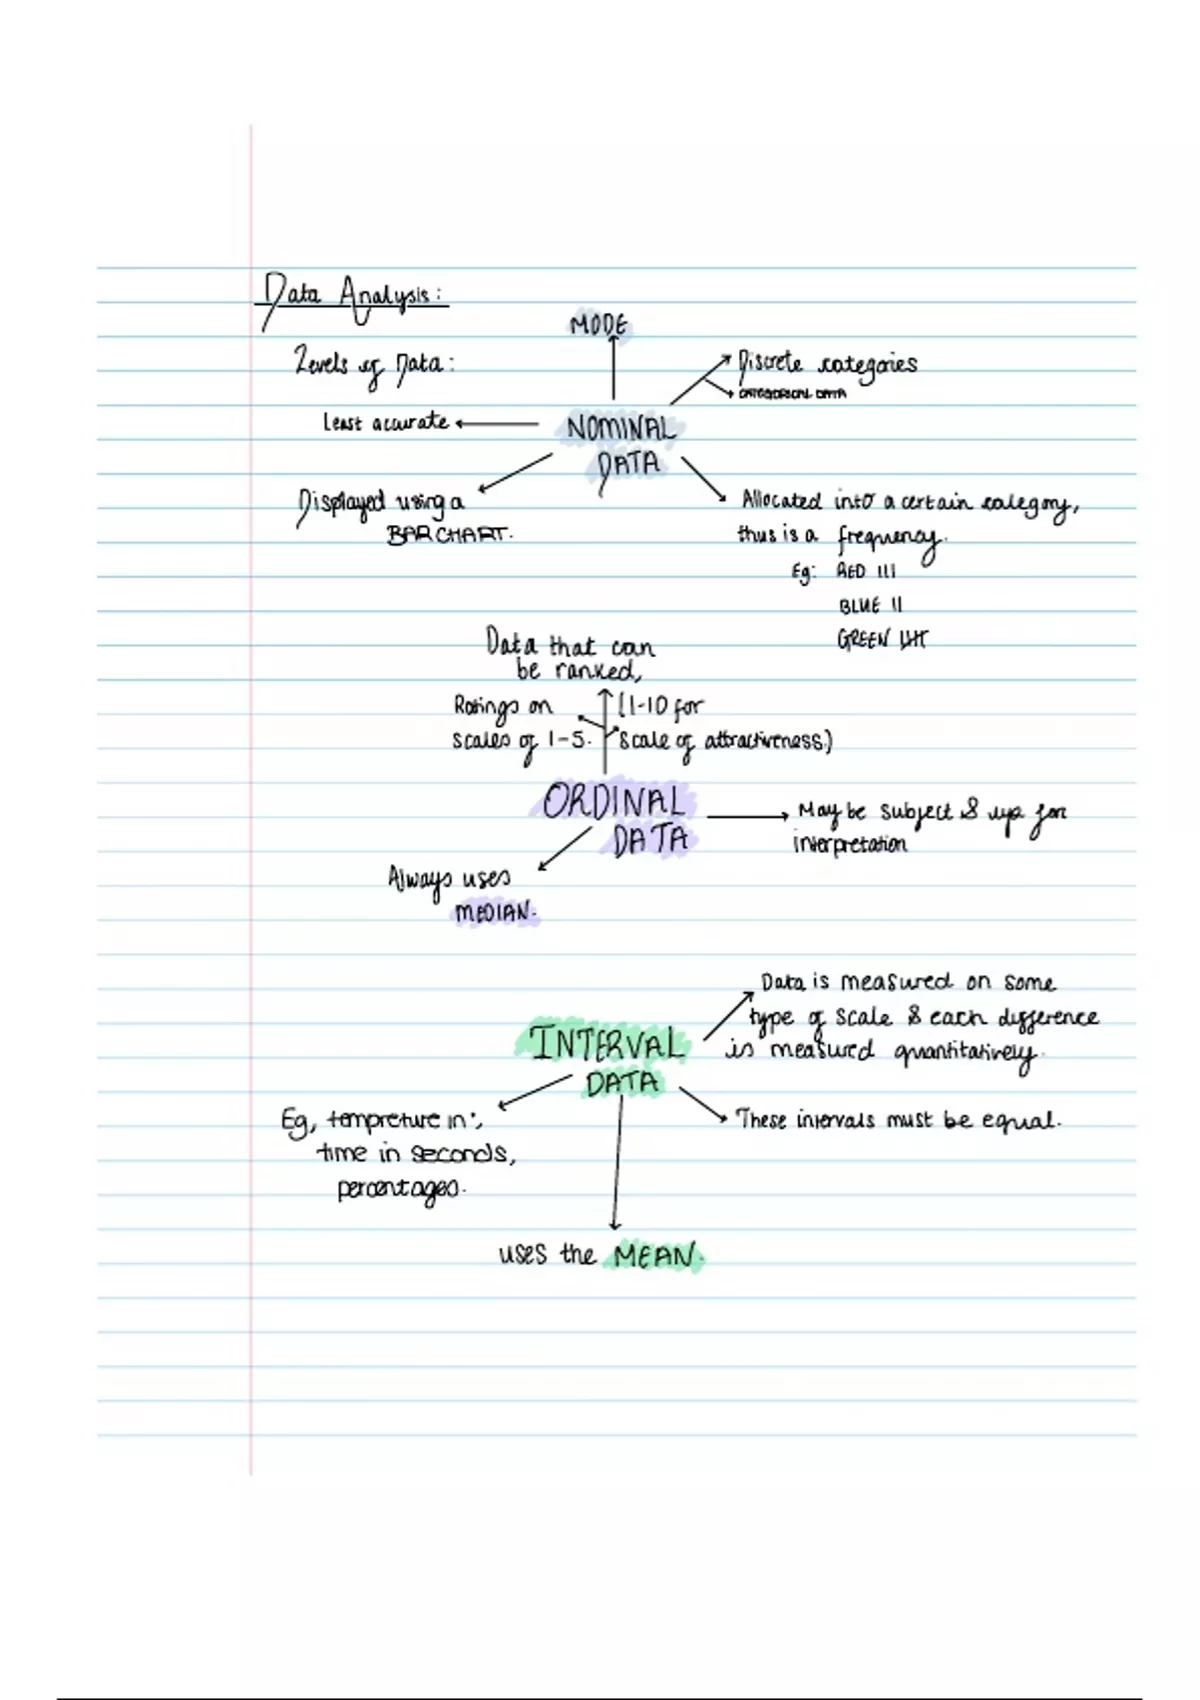 Data Analysis:
MODE
Levels of Data:
Discrete categories
CATEGORICAL DATA
Least accurate
NOMINAL
DATA
Displayed using a
BAR CHART.
Allocated into a certain category,
thus is a frequency.
Eg: RED III
BLUE II
GREEN IIII
Data that can
be ranked,
Ratings on
scales of 1-5.
(1-10 for
scale of attractiveness.)
ORDINAL
DATA
May be subject & up for
interpretation
Always uses
MEDIAN.
Data is measured on some
type of scale & each difference
is measured quantitatively.
INTERVAL
DATA
Eg, tempreture in °,
time in seconds,
percentages.
These intervals must be equal.
uses the MEAN.